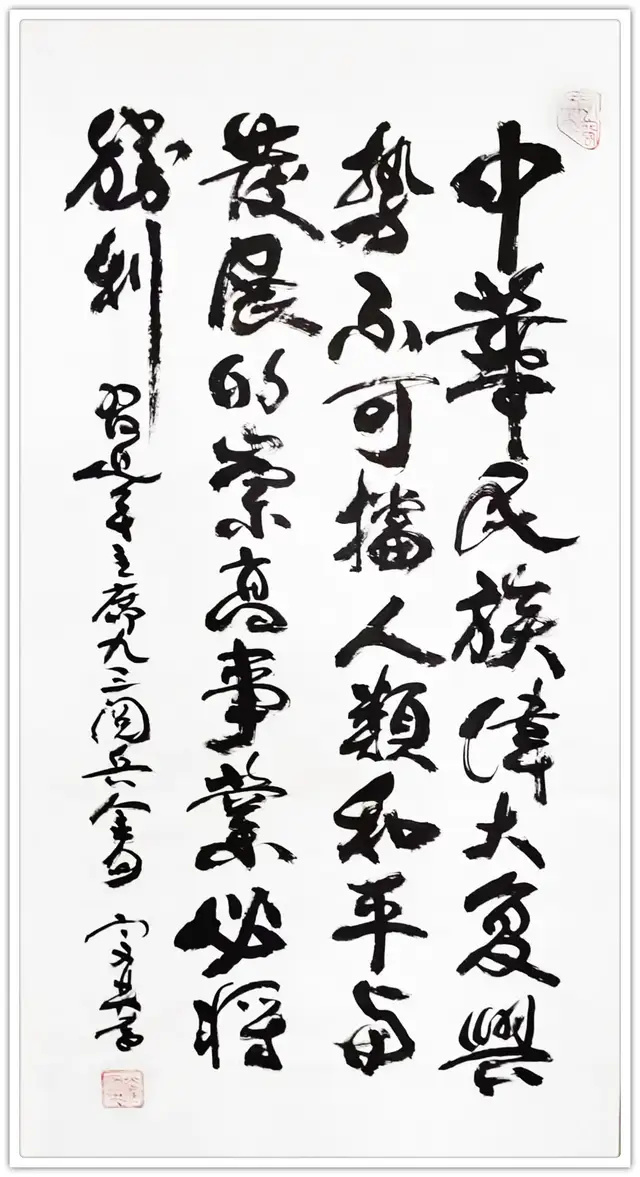 中華民族偉大复興
势不可擋人類和平与
發展的崇高事業必將
勝利
習近平主席九三阅兵金句